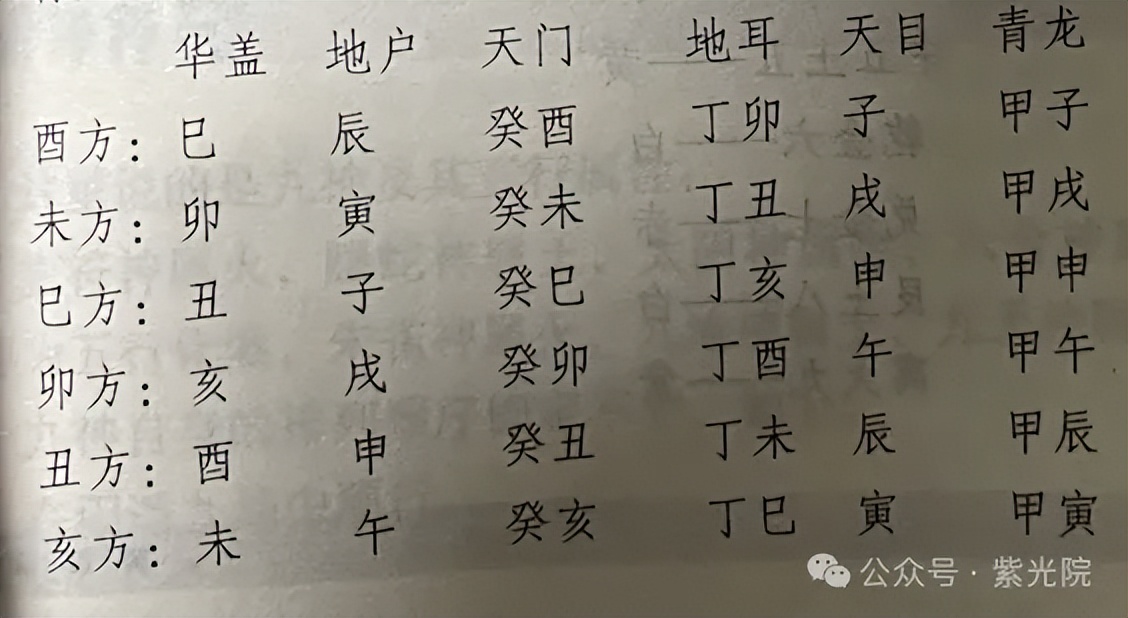 华盖 地户 天门 地耳 天目 青龙
酉方：巳 辰 癸酉 丁卯 子 甲子
未方：卯 寅 癸未 丁丑 戌 甲戌
巳方：丑 子 癸巳 丁亥 申 甲申
卯方：亥 戌 癸卯 丁酉 午 甲午
丑方：酉 申 癸丑 丁未 辰 甲辰
亥方：未 午 癸亥 丁巳 寅 甲寅
公众号·紫光院